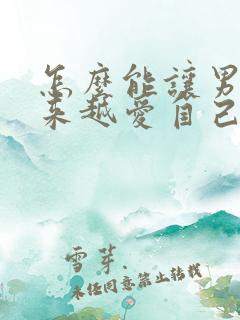 怎麼能讓男
來越愛自己
雪芽.
未經同意禁止轉載